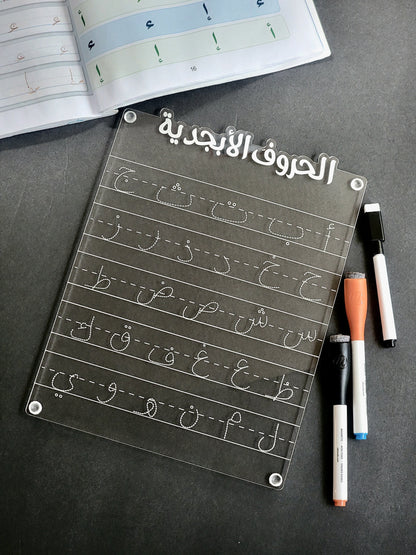 الحروف الأبجدية
أ ب ت ث ج
ح خ د ذ ر ز
س ش ص ض ط
ظ ع غ ف ق ك
ل م ن هـ و ي
16